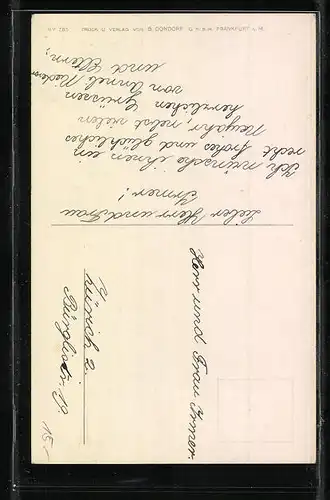 Lieber Herr und Frau
Irmer!
Ich wünsche ihnen ein
recht frohes und glückliches
Neujahr, nebst vielen
herzlichen Grüssen
von Anneli
und Eltern.
Herr und Frau Irmer.
Zürich 2.
Bürglistr. 19
DRUCK U. VERLAG VON B. DONDORF G.M.B.H. FRANKFURT a. M.
15.-